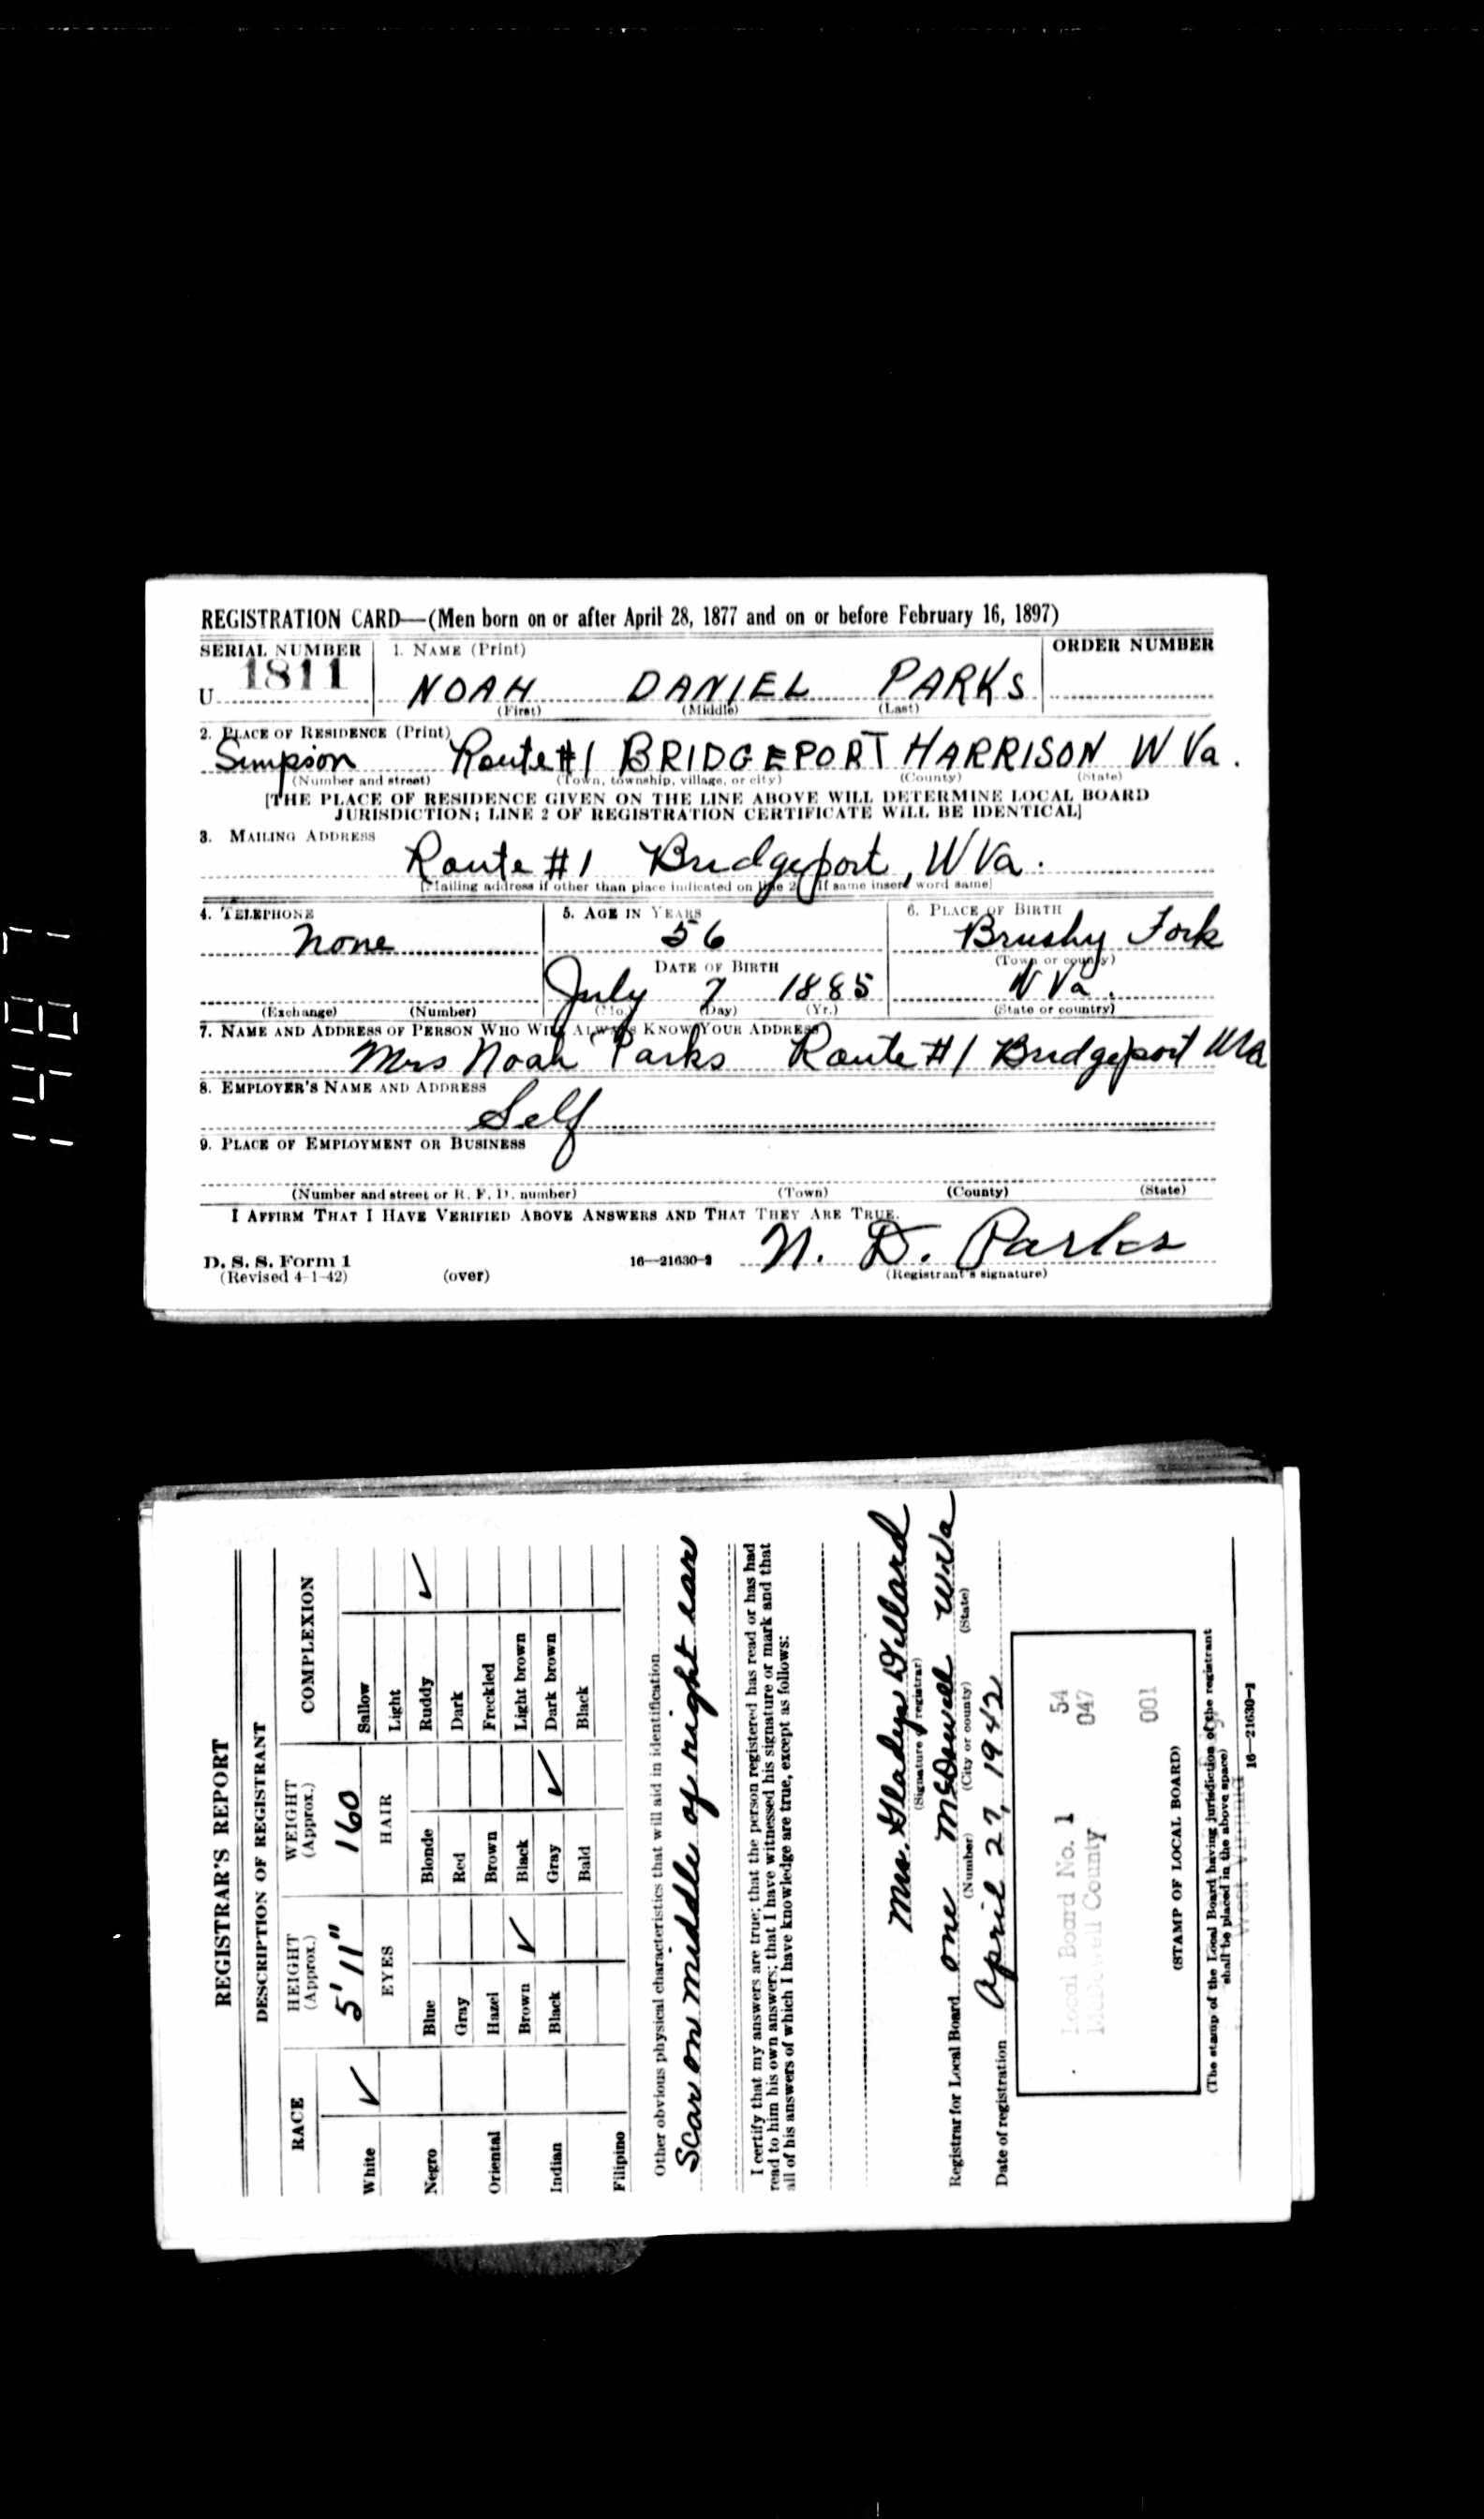 REGISTRATION CARD—(Men born on or after April 28, 1877 and on or before February 16, 1897)
SERIAL NUMBER 1. NAME (Print) ORDER NUMBER
U 1811 NOAH DANIEL PARKS
(First) (Middle) (Last)
2. PLACE OF RESIDENCE (Print)
Simpson Route #1 BRIDGEPORT HARRISON W Va.
(Number and street) (Town, township, village, or city) (County) (State)
[THE PLACE OF RESIDENCE GIVEN ON THE LINE ABOVE WILL DETERMINE LOCAL BOARD
JURISDICTION; LINE 2 OF REGISTRATION CERTIFICATE WILL BE IDENTICAL]
3. MAILING ADDRESS
Route #1 Bridgeport, W Va.
[Mailing address if other than place indicated on line 2. If same insert word same]
4. TELEPHONE 5. AGE IN YEARS 6. PLACE OF BIRTH
None 56 Brushy Fork
DATE OF BIRTH (Town or county)
July 7 1885 W Va.
(Exchange) (Number) (Mo.) (Day) (Yr.) (State or country)
7. NAME AND ADDRESS OF PERSON WHO WILL ALWAYS KNOW YOUR ADDRESS
Mrs Noah Parks Route #1 Bridgeport WVa
8. EMPLOYER'S NAME AND ADDRESS
Self
9. PLACE OF EMPLOYMENT OR BUSINESS
(Number and street or R. F. D. number) (Town) (County) (State)
I AFFIRM THAT I HAVE VERIFIED ABOVE ANSWERS AND THAT THEY ARE TRUE.
D. S. S. Form 1
(Revised 4-1-42) (over) 16—21630-2 N. D. Parks
(Registrant's signature)
REGISTRAR'S REPORT
DESCRIPTION OF REGISTRANT
RACE HEIGHT (Approx.) WEIGHT (Approx.) COMPLEXION
White ✓ 5' 11" 160 Sallow
EYES HAIR Light
Negro Blue Blonde Ruddy ✓
Gray Red Dark
Oriental Hazel Brown Freckled
Brown ✓ Black Light brown
Indian Black Gray ✓ Dark brown
Bald Black
Filipino
Other obvious physical characteristics that will aid in identification
Scar on middle of right ear
I certify that my answers are true; that the person registered has read or has had
read to him his own answers; that I have witnessed his signature or mark and that
all of his answers of which I have knowledge are true, except as follows:
Mrs. Gladys Dillard
(Signature of registrar)
Registrar for Local Board one McDowell WVa
(Number) (City or county) (State)
Date of registration April 27, 1942
Local Board No. 1 54
McDowell County 047
001
(STAMP OF LOCAL BOARD)
(The stamp of the Local Board having jurisdiction of the registrant
shall be placed in the above space)
West Virginia
16—21630-2
1487